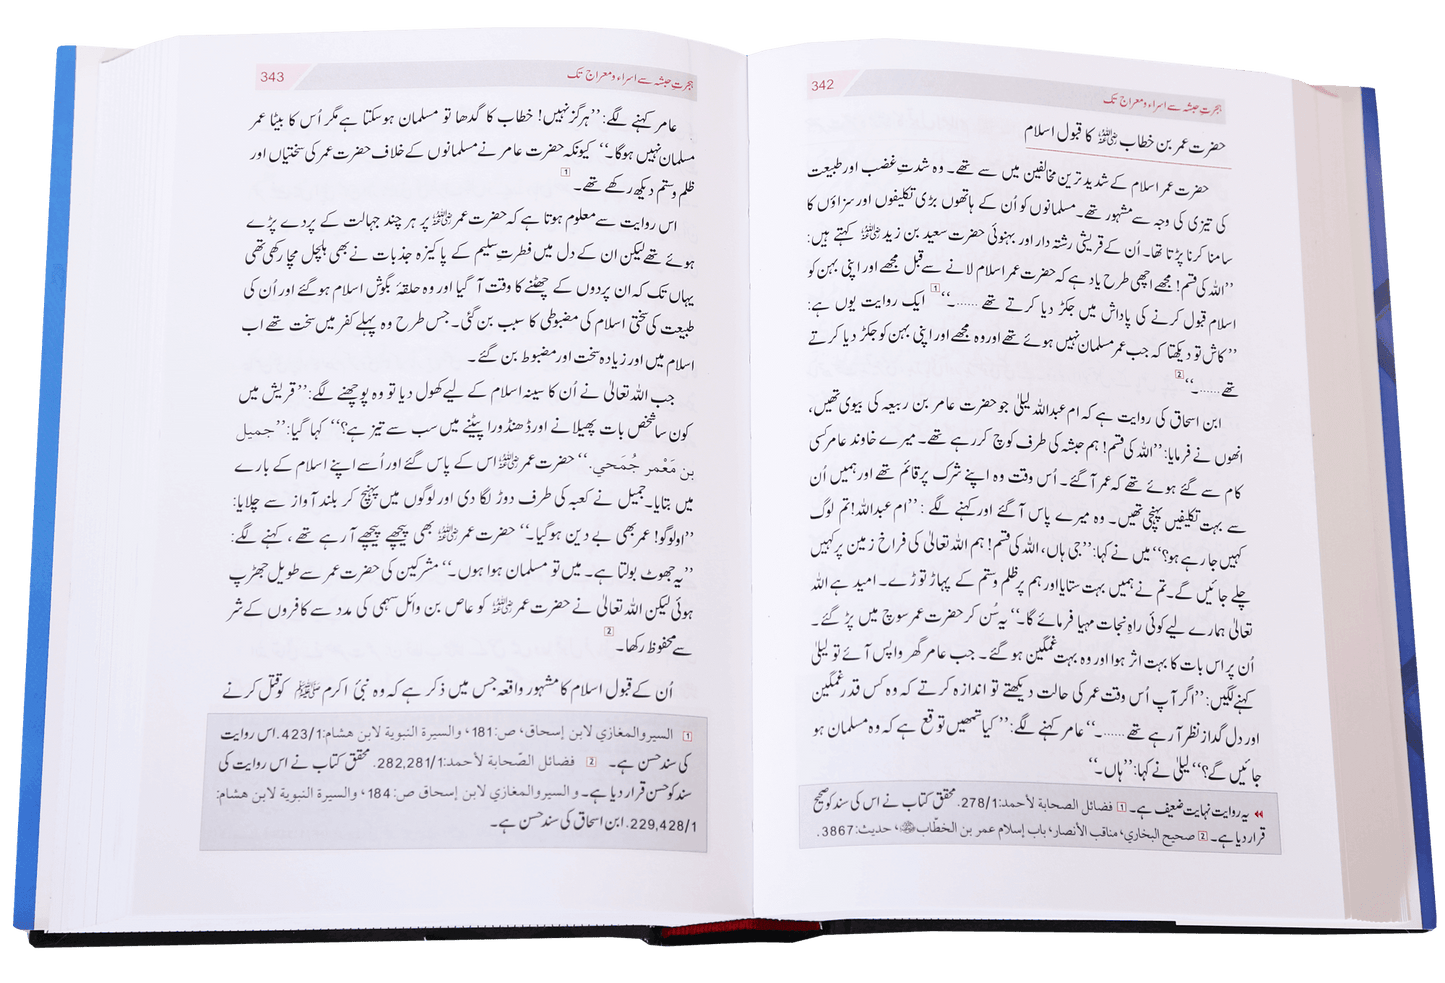 342
ہجرتِ حبشہ سے اسراء و معراج تک
حضرت عمر بن خطاب رضی اللہ عنہ کا قبول اسلام
حضرت عمر اسلام کے شدید ترین مخالفین میں سے تھے۔ وہ شدتِ غضب اور طبیعت
کی تیزی کی وجہ سے مشہور تھے۔ مسلمانوں کو اُن کے ہاتھوں بڑی تکلیفوں اور سزاؤں کا
سامنا کرنا پڑتا تھا۔ اُن کے قریشی رشتہ دار اور بہنوئی حضرت سعید بن زید رضی اللہ عنہ کہتے ہیں:
’’اللہ کی قسم! مجھے اچھی طرح یاد ہے کہ حضرت عمر اسلام لانے سے قبل مجھے اور اپنی بہن کو
اسلام قبول کرنے کی پاداش میں جکڑ دیا کرتے تھے ......۔‘‘ 1 ایک روایت یوں ہے:
’’کاش تو دیکھتا کہ جب عمر مسلمان نہیں ہوئے تھے اور وہ مجھے اور اپنی بہن کو جکڑ دیا کرتے
تھے......۔‘‘ 2
ابن اسحاق کی روایت ہے کہ ام عبداللہ لیلیٰ جو حضرت عامر بن ربیعہ کی بیوی تھیں،
انھوں نے فرمایا: ’’اللہ کی قسم! ہم حبشہ کی طرف کوچ کر رہے تھے۔ میرے خاوند عامر کسی
کام سے گئے ہوئے تھے کہ عمر آ گئے۔ اُس وقت وہ اپنے شرک پر قائم تھے اور ہمیں اُن
سے بہت تکلیفیں پہنچی تھیں۔ وہ میرے پاس آ گئے اور کہنے لگے: ’’ام عبداللہ! تم لوگ
کہیں جا رہے ہو؟‘‘ میں نے کہا: ’’جی ہاں، اللہ کی قسم! ہم اللہ تعالیٰ کی فراخ زمین پر کہیں
چلے جائیں گے۔ تم نے ہمیں بہت ستایا اور ہم پر ظلم وستم کے پہاڑ توڑے۔ امید ہے اللہ
تعالیٰ ہمارے لیے کوئی راہِ نجات مہیا فرمائے گا۔‘‘ یہ سُن کر حضرت عمر سوچ میں پڑ گئے۔
اُن پر اس بات کا بہت اثر ہوا اور وہ بہت غمگین ہو گئے۔ جب عامر گھر واپس آئے تو لیلیٰ
کہنے لگیں: ’’اگر آپ اُس وقت عمر کی حالت دیکھتے تو اندازہ کرتے کہ وہ کس قدر غمگین
اور دل گداز نظر آ رہے تھے......۔‘‘ عامر کہنے لگے: ’’کیا تمھیں توقع ہے کہ وہ مسلمان ہو
جائیں گے؟‘‘ لیلیٰ نے کہا: ’’ہاں۔‘‘
یہ روایت نہایت ضعیف ہے۔ 1 فضائل الصحابة لأحمد: 278/1. محقق کتاب نے اس کی سند کو صحیح
قرار دیا ہے۔ 2 صحیح البخاري، مناقب الأنصار، باب إسلام عمر بن الخطّاب رضی اللہ عنہ، حدیث: 3867.
343
ہجرتِ حبشہ سے اسراء و معراج تک
عامر کہنے لگے: ’’ہرگز نہیں! خطاب کا گدھا تو مسلمان ہو سکتا ہے مگر اُس کا بیٹا عمر
مسلمان نہیں ہوگا۔‘‘ کیونکہ حضرت عامر نے مسلمانوں کے خلاف حضرت عمر کی سختیاں اور
ظلم وستم دیکھ رکھے تھے۔ 1
اس روایت سے معلوم ہوتا ہے کہ حضرت عمر رضی اللہ عنہ پر ہر چند جہالت کے پردے پڑے
ہوئے تھے لیکن ان کے دل میں فطرتِ سلیم کے پاکیزہ جذبات نے بھی ہلچل مچا رکھی تھی
یہاں تک کہ ان پردوں کے چھٹنے کا وقت آ گیا اور وہ حلقہ بگوشِ اسلام ہو گئے اور اُن کی
طبیعت کی سختی اسلام کی مضبوطی کا سبب بن گئی۔ جس طرح وہ پہلے کفر میں سخت تھے اب
اسلام میں اور زیادہ سخت اور مضبوط بن گئے۔
جب اللہ تعالیٰ نے اُن کا سینہ اسلام کے لیے کھول دیا تو وہ پوچھنے لگے: ’’قریش میں
کون سا شخص بات پھیلانے اور ڈھنڈورا پیٹنے میں سب سے تیز ہے؟‘‘ کہا گیا: ’’جمیل
بن مَعْمر جُمَحي.‘‘ حضرت عمر رضی اللہ عنہ اس کے پاس گئے اور اُسے اپنے اسلام کے بارے
میں بتایا۔ جمیل نے کعبہ کی طرف دوڑ لگا دی اور لوگوں میں پہنچ کر بلند آواز سے چلایا:
’’او لوگو! عمر بھی بے دین ہو گیا۔‘‘ حضرت عمر رضی اللہ عنہ بھی پیچھے پیچھے آ رہے تھے، کہنے لگے:
’’یہ جھوٹ بولتا ہے۔ میں تو مسلمان ہوا ہوں۔‘‘ مشرکین کی حضرت عمر سے طویل جھڑپ
ہوئی لیکن اللہ تعالیٰ نے حضرت عمر رضی اللہ عنہ کو عاص بن وائل سہمی کی مدد سے کافروں کے شر
سے محفوظ رکھا۔ 2
اُن کے قبول اسلام کا مشہور واقعہ جس میں ذکر ہے کہ وہ نبیٔ اکرم ﷺ کو قتل کرنے
1 السير والمغازي لابن إسحاق، ص: 181، والسيرة النبوية لابن هشام: 423/1. اس روایت
کی سند حسن ہے۔ 2 فضائل الصّحابة لأحمد: 282,281/1. محقق کتاب نے اس روایت کی
سند کو حسن قرار دیا ہے۔ والسير والمغازي لابن إسحاق ص: 184، والسيرة النبوية لابن هشام:
229,428/1. ابن اسحاق کی سند حسن ہے۔